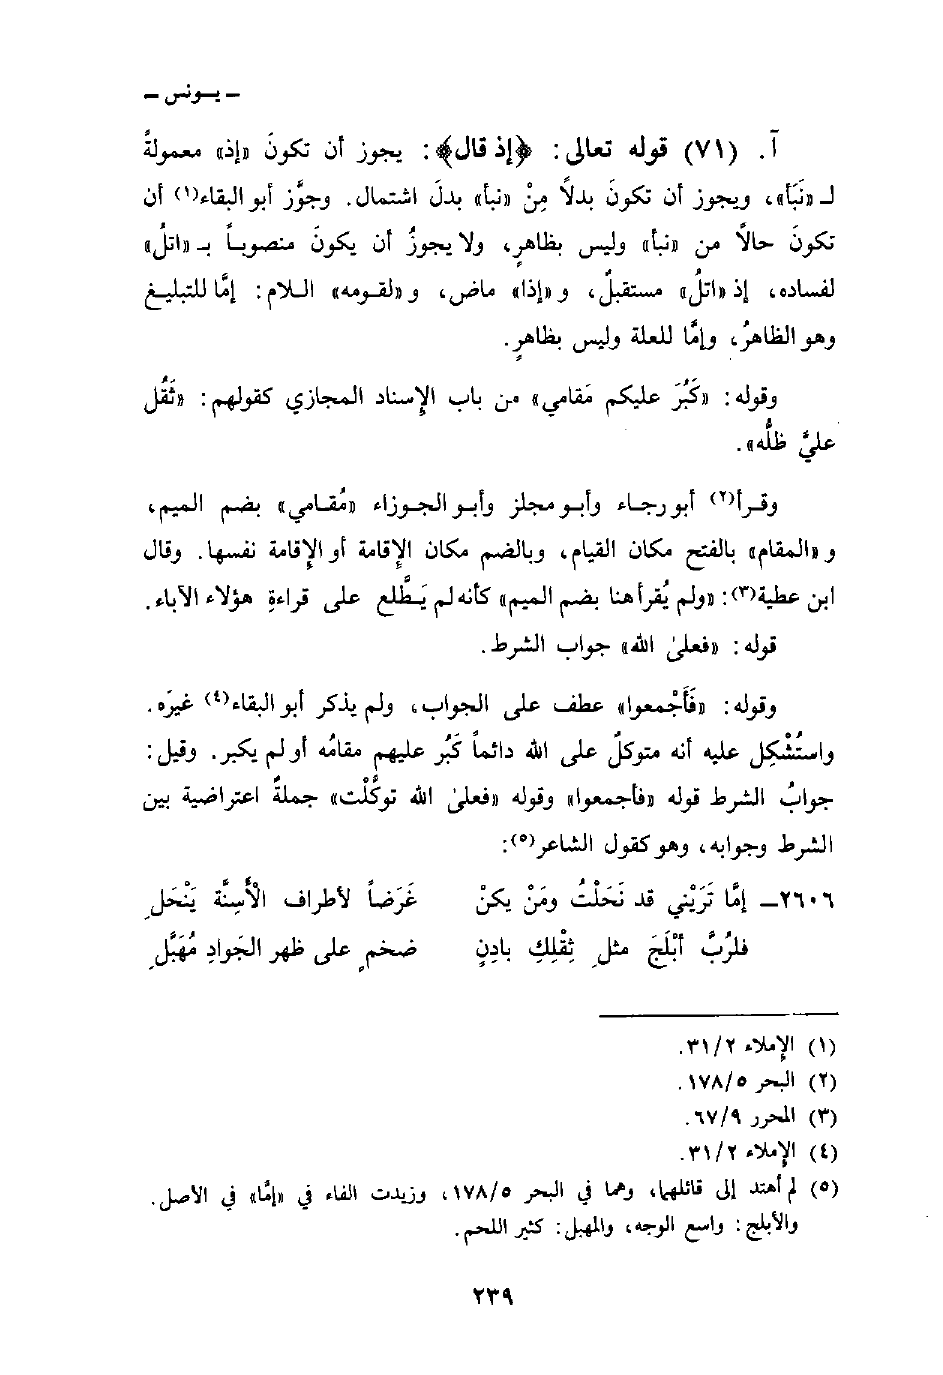 ـ يـونس ـ
آ. (٧١) قوله تعالى: ﴿إذ قال﴾: يجوز أن تكونَ «إذ» معمولةً
لـ «نَبَأ»، ويجوز أن تكونَ بدلاً مِنْ «نبأ» بدلَ اشتمال. وجوَّز أبو البقاء(١) أن
تكونَ حالاً من «نبأ» وليس بظاهرٍ، ولا يجوزُ أن يكونَ منصوباً بـ «اتلُ»
لفساده، إذ «اتلُ» مستقبلٌ، و «إذا» ماض، و «لقومه» اللام: إمَّا للتبليغ
وهو الظاهرُ، وإمَّا للعلة وليس بظاهرٍ.
وقوله: «كَبُرَ عليكم مَقامي» من باب الإسناد المجازي كقولهم: «ثَقُل
عليَّ ظلُّه».
وقرأ(٢) أبو رجاء وأبو مجلز وأبو الجوزاء «مُقامي» بضم الميم،
و «المقام» بالفتح مكان القيام، وبالضم مكان الإِقامة أو الإِقامة نفسها. وقال
ابن عطية(٣): «ولم يُقرأ هنا بضم الميم» كأنه لم يَطَّلع على قراءةِ هؤلاء الآباء.
قوله: «فعلىٰ الله» جواب الشرط.
وقوله: «فَأَجْمعوا» عطف على الجواب، ولم يذكر أبو البقاء(٤) غيرَه.
واستُشْكِل عليه أنه متوكلٌ على الله دائماً كَبُر عليهم مقامُه أو لم يكبر. وقيل:
جوابُ الشرط قوله «فأجمعوا» وقوله «فعلىٰ الله توكَّلْت» جملةٌ اعتراضية بين
الشرط وجوابه، وهو كقول الشاعر(٥):
٢٦٠٦ـ إمَّا تَرَيْني قد نَحَلْتُ ومَنْ يكنْ غَرَضاً لأطراف الْأَسِنَّة يَنْحَلِ
فلرُبَّ أَبْلَجَ مثلِ ثِقْلِكِ بادِنٍ ضخمٍ على ظهر الجَوادِ مُهَبَّلِ
(١) الإِملاء ٣١/٢.
(٢) البحر ١٧٨/٥.
(٣) المحرر ٦٧/٩.
(٤) الإِملاء ٣١/٢.
(٥) لم أهتد إلى قائلهما، وهما في البحر ١٧٨/٥، وزيدت الفاء في «إمَّا» في الأصل.
والأبلج: واسع الوجه، والمهبل: كثير اللحم.
٢٣٩